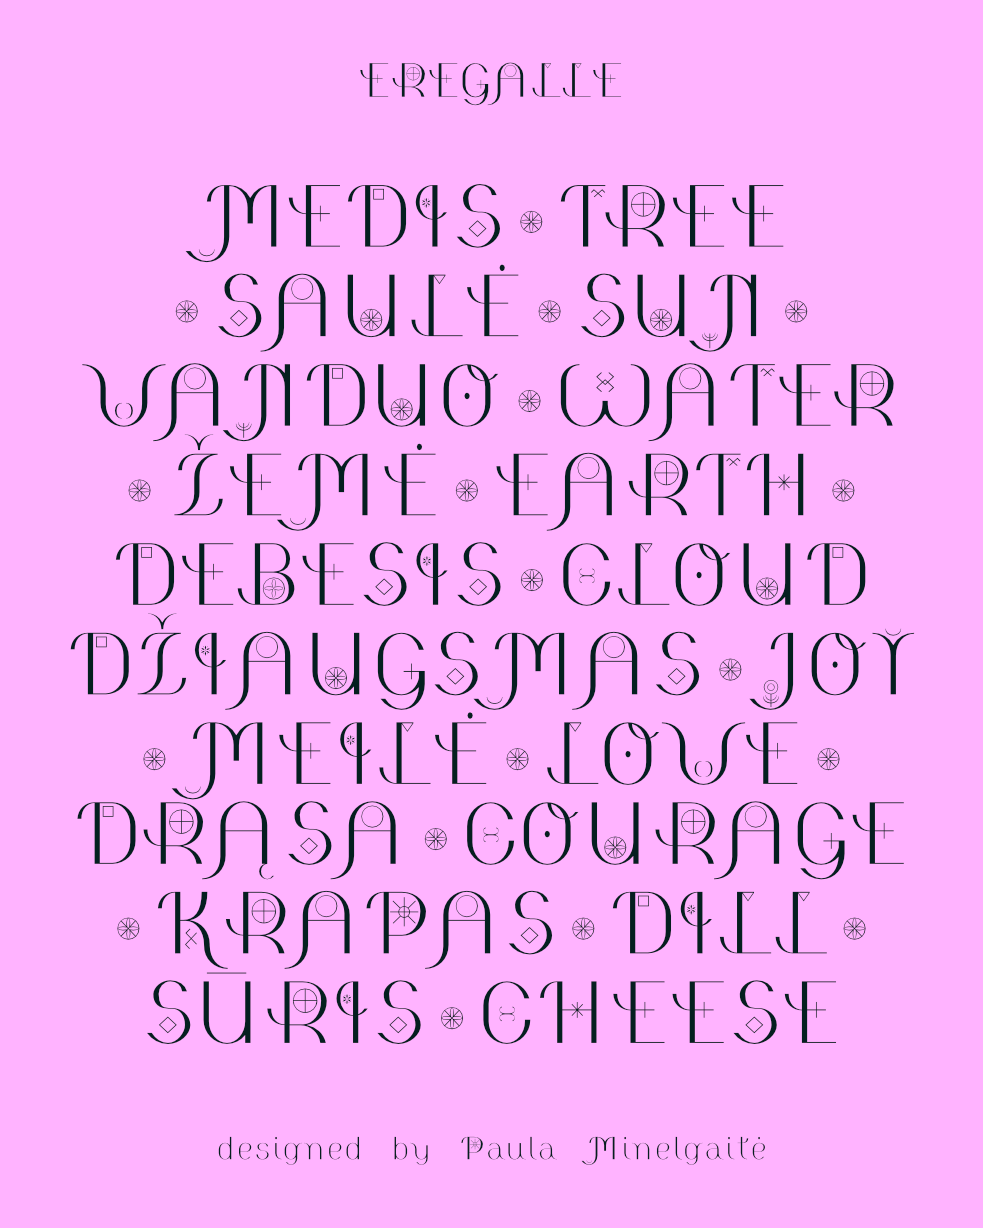 EREGALLE
MEDIS TREE
SAULĖ SUN
VANDUO WATER
ŽEMĖ EARTH
DEBESIS CLOUD
DŽIAUGSMAS JOY
MEILĖ LOVE
DRĄSA COURAGE
KRAPAS DILL
SŪRIS CHEESE
designed by Paula Minelgaitė